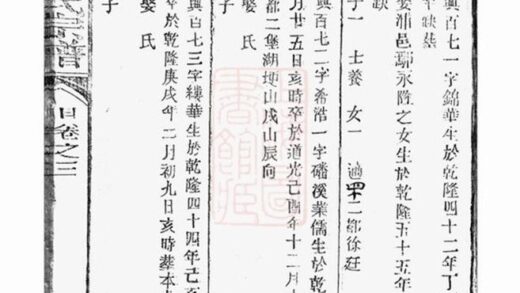 興百七一字錦華生於乾隆四十二年丁
卒缺葬
娶浦邑鄢永隆之女生於乾隆五十五年
缺
子一 士養 女一 適四十二都徐廷
興百七二字希浩一字磻溪業儒生於乾
月廿五日亥時卒於道光己酉年十二月十
都二堡湖埂山戌山辰向
娶氏
子
興百七三字縷華生於乾隆四十四年己亥
於乾隆庚戌年二月初九日亥時葬本
娶氏
子
氏宗譜
日卷之三